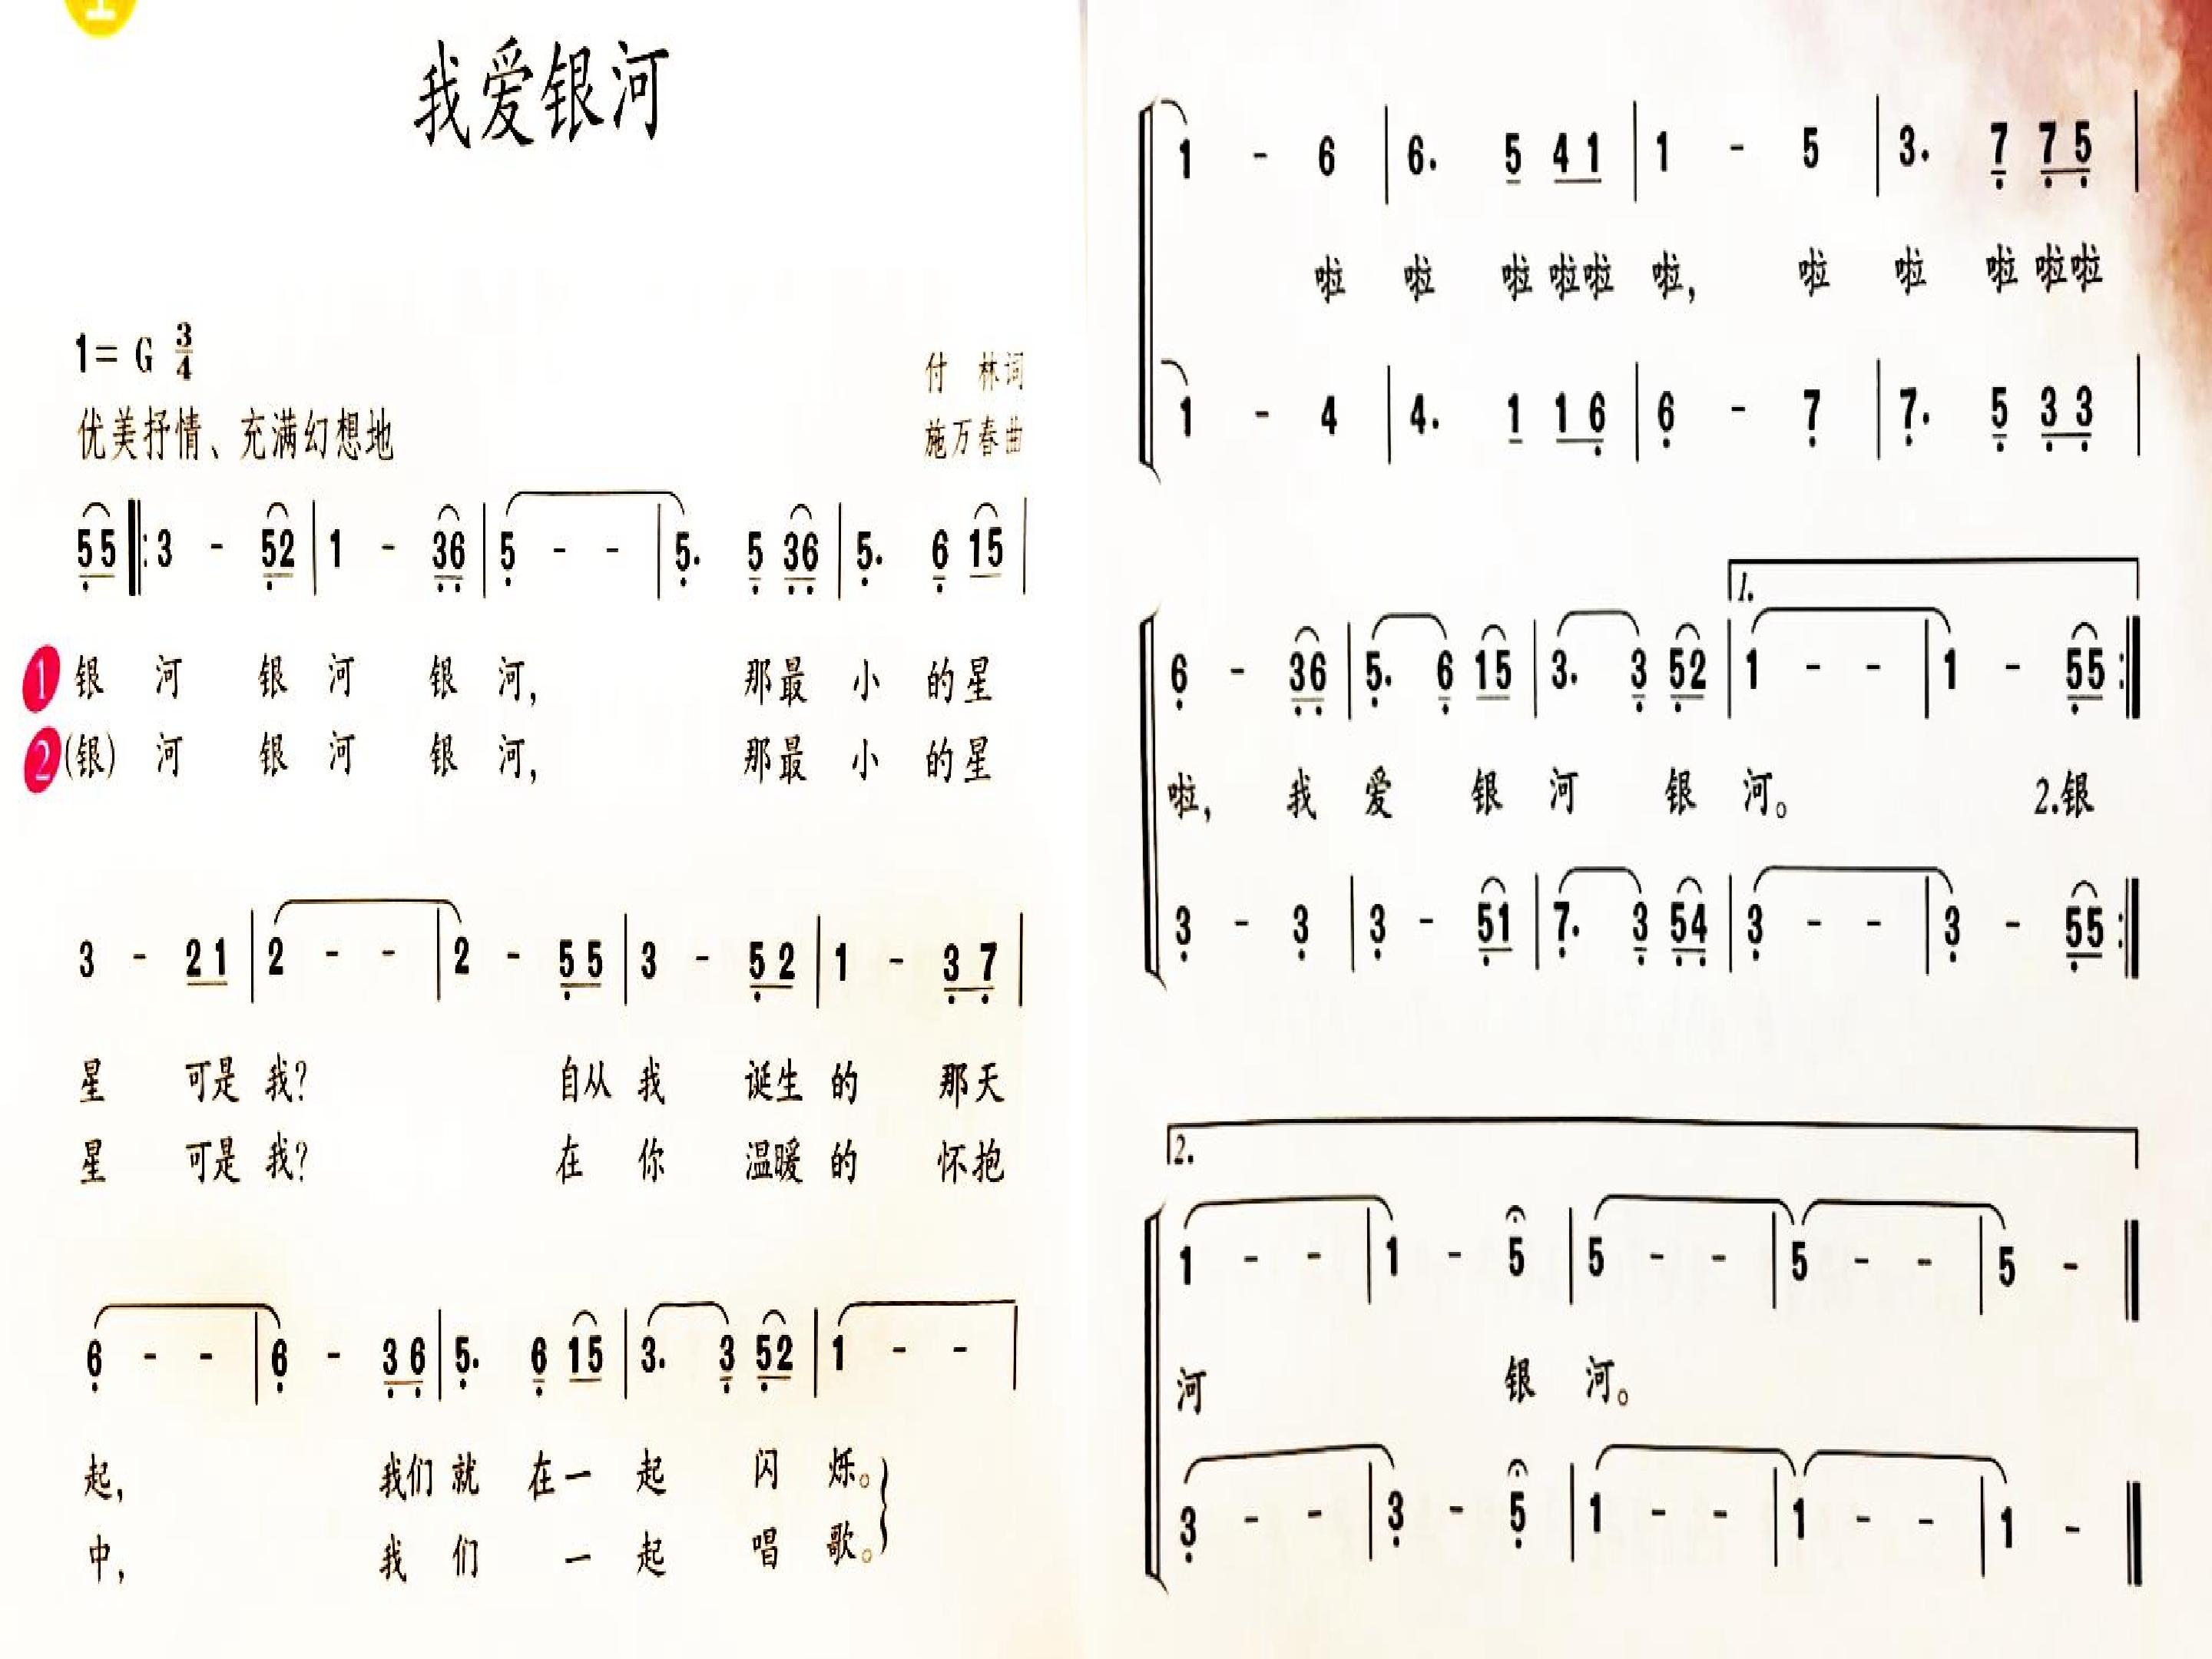 我爱银河
1= G 3/4
付 林词
优美抒情、充满幻想地
施万春曲
5 5 ‖: 3 - 5 2 | 1 - 3 6 | 5 - - | 5. 5 3 6 | 5. 6 1 5 |
1 银 河 银 河 银 河, 那最 小 的星
2 (银) 河 银 河 银 河, 那最 小 的星
3 - 2 1 | 2 - - | 2 - 5 5 | 3 - 5 2 | 1 - 3 7 |
星 可是 我? 自从 我 诞生 的 那天
星 可是 我? 在 你 温暖 的 怀抱
6 - - | 6 - 3 6 | 5. 6 1 5 | 3. 3 5 2 | 1 - - |
起, 我们 就 在一 起 闪 烁。
中, 我 们 一 起 唱 歌。
1 - 6 | 6. 5 4 1 | 1 - 5 | 3. 7 7 5 |
啦 啦 啦 啦啦 啦, 啦 啦 啦 啦啦
1 - 4 | 4. 1 1 6 | 6 - 7 | 7. 5 3 3 |
1.
6 - 3 6 | 5. 6 1 5 | 3. 3 5 2 | 1 - - | 1 - 5 5 :‖
啦, 我 爱 银 河 银 河。 2.银
3 - 3 | 3 - 5 1 | 7. 3 5 4 | 3 - - | 3 - 5 5 :‖
2.
1 - - | 1 - 5 | 5 - - | 5 - - | 5 - ‖
河 银 河。
3 - - | 3 - 5 | 1 - - | 1 - - | 1 - ‖